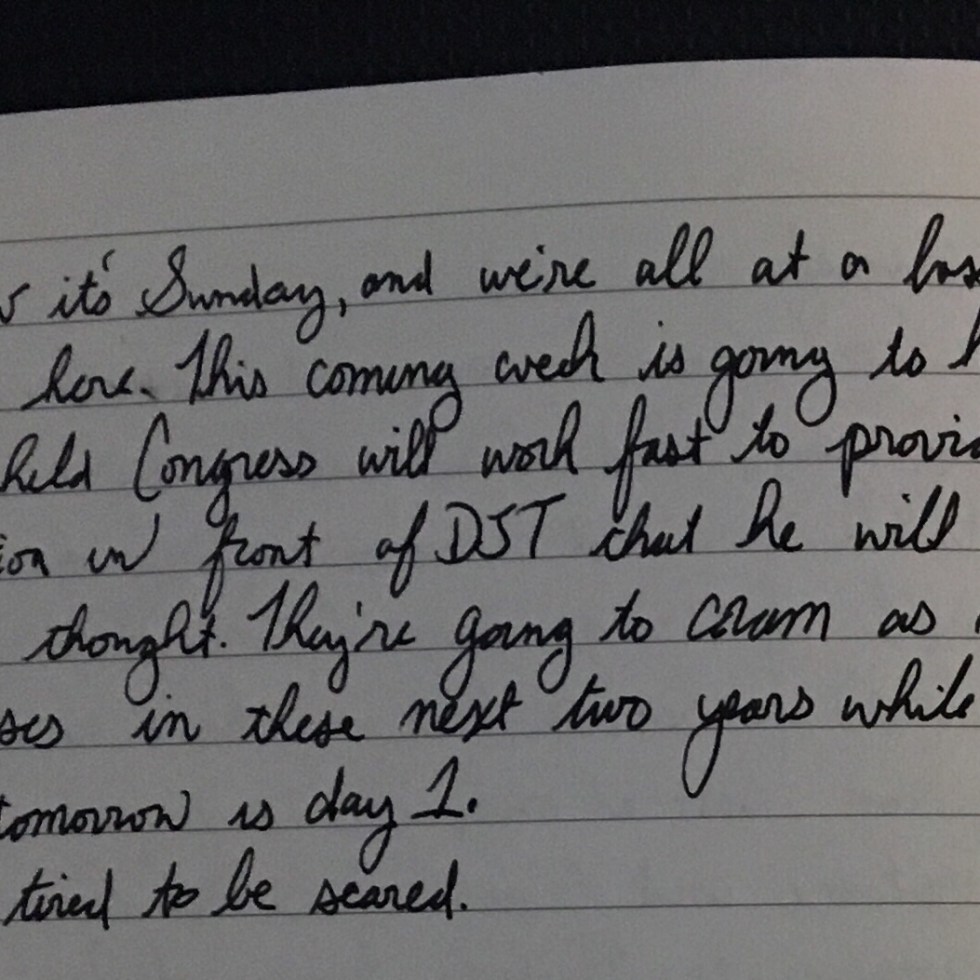 it's Sunday, and we're all at a
here. This coming week is going to
held Congress will work fast to
in front of DJT that he will
thought. They're going to cram as
in these next two years while
tomorrow is day 1.
tired to be scared.